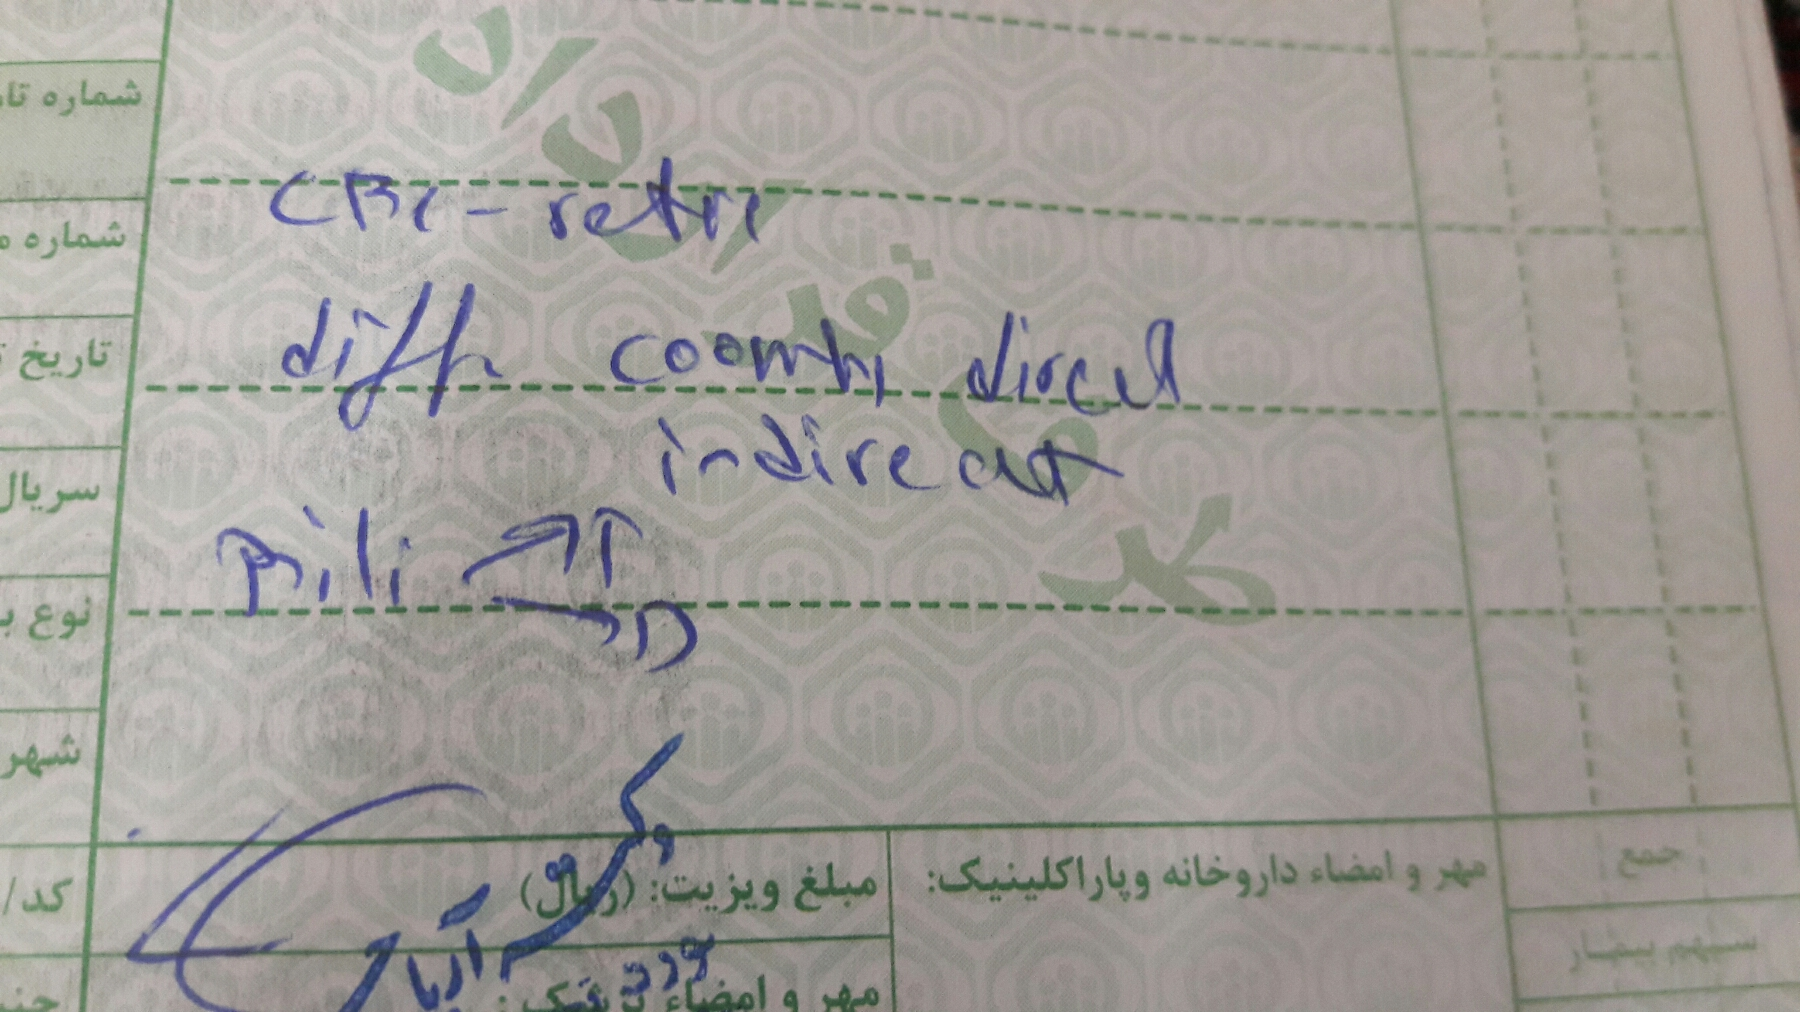 شماره تا
CBC - retic
شماره م
diff coombs direct
تاریخ ت
indirect
سریال
Bili T
D
نوع ب
شهر
کد/
مبلغ ویزیت: (ریال)
مهر و امضاء داروخانه وپاراکلینیک:
جمع
سهم بیمار
مهر و امضاء پزشک:
جنس